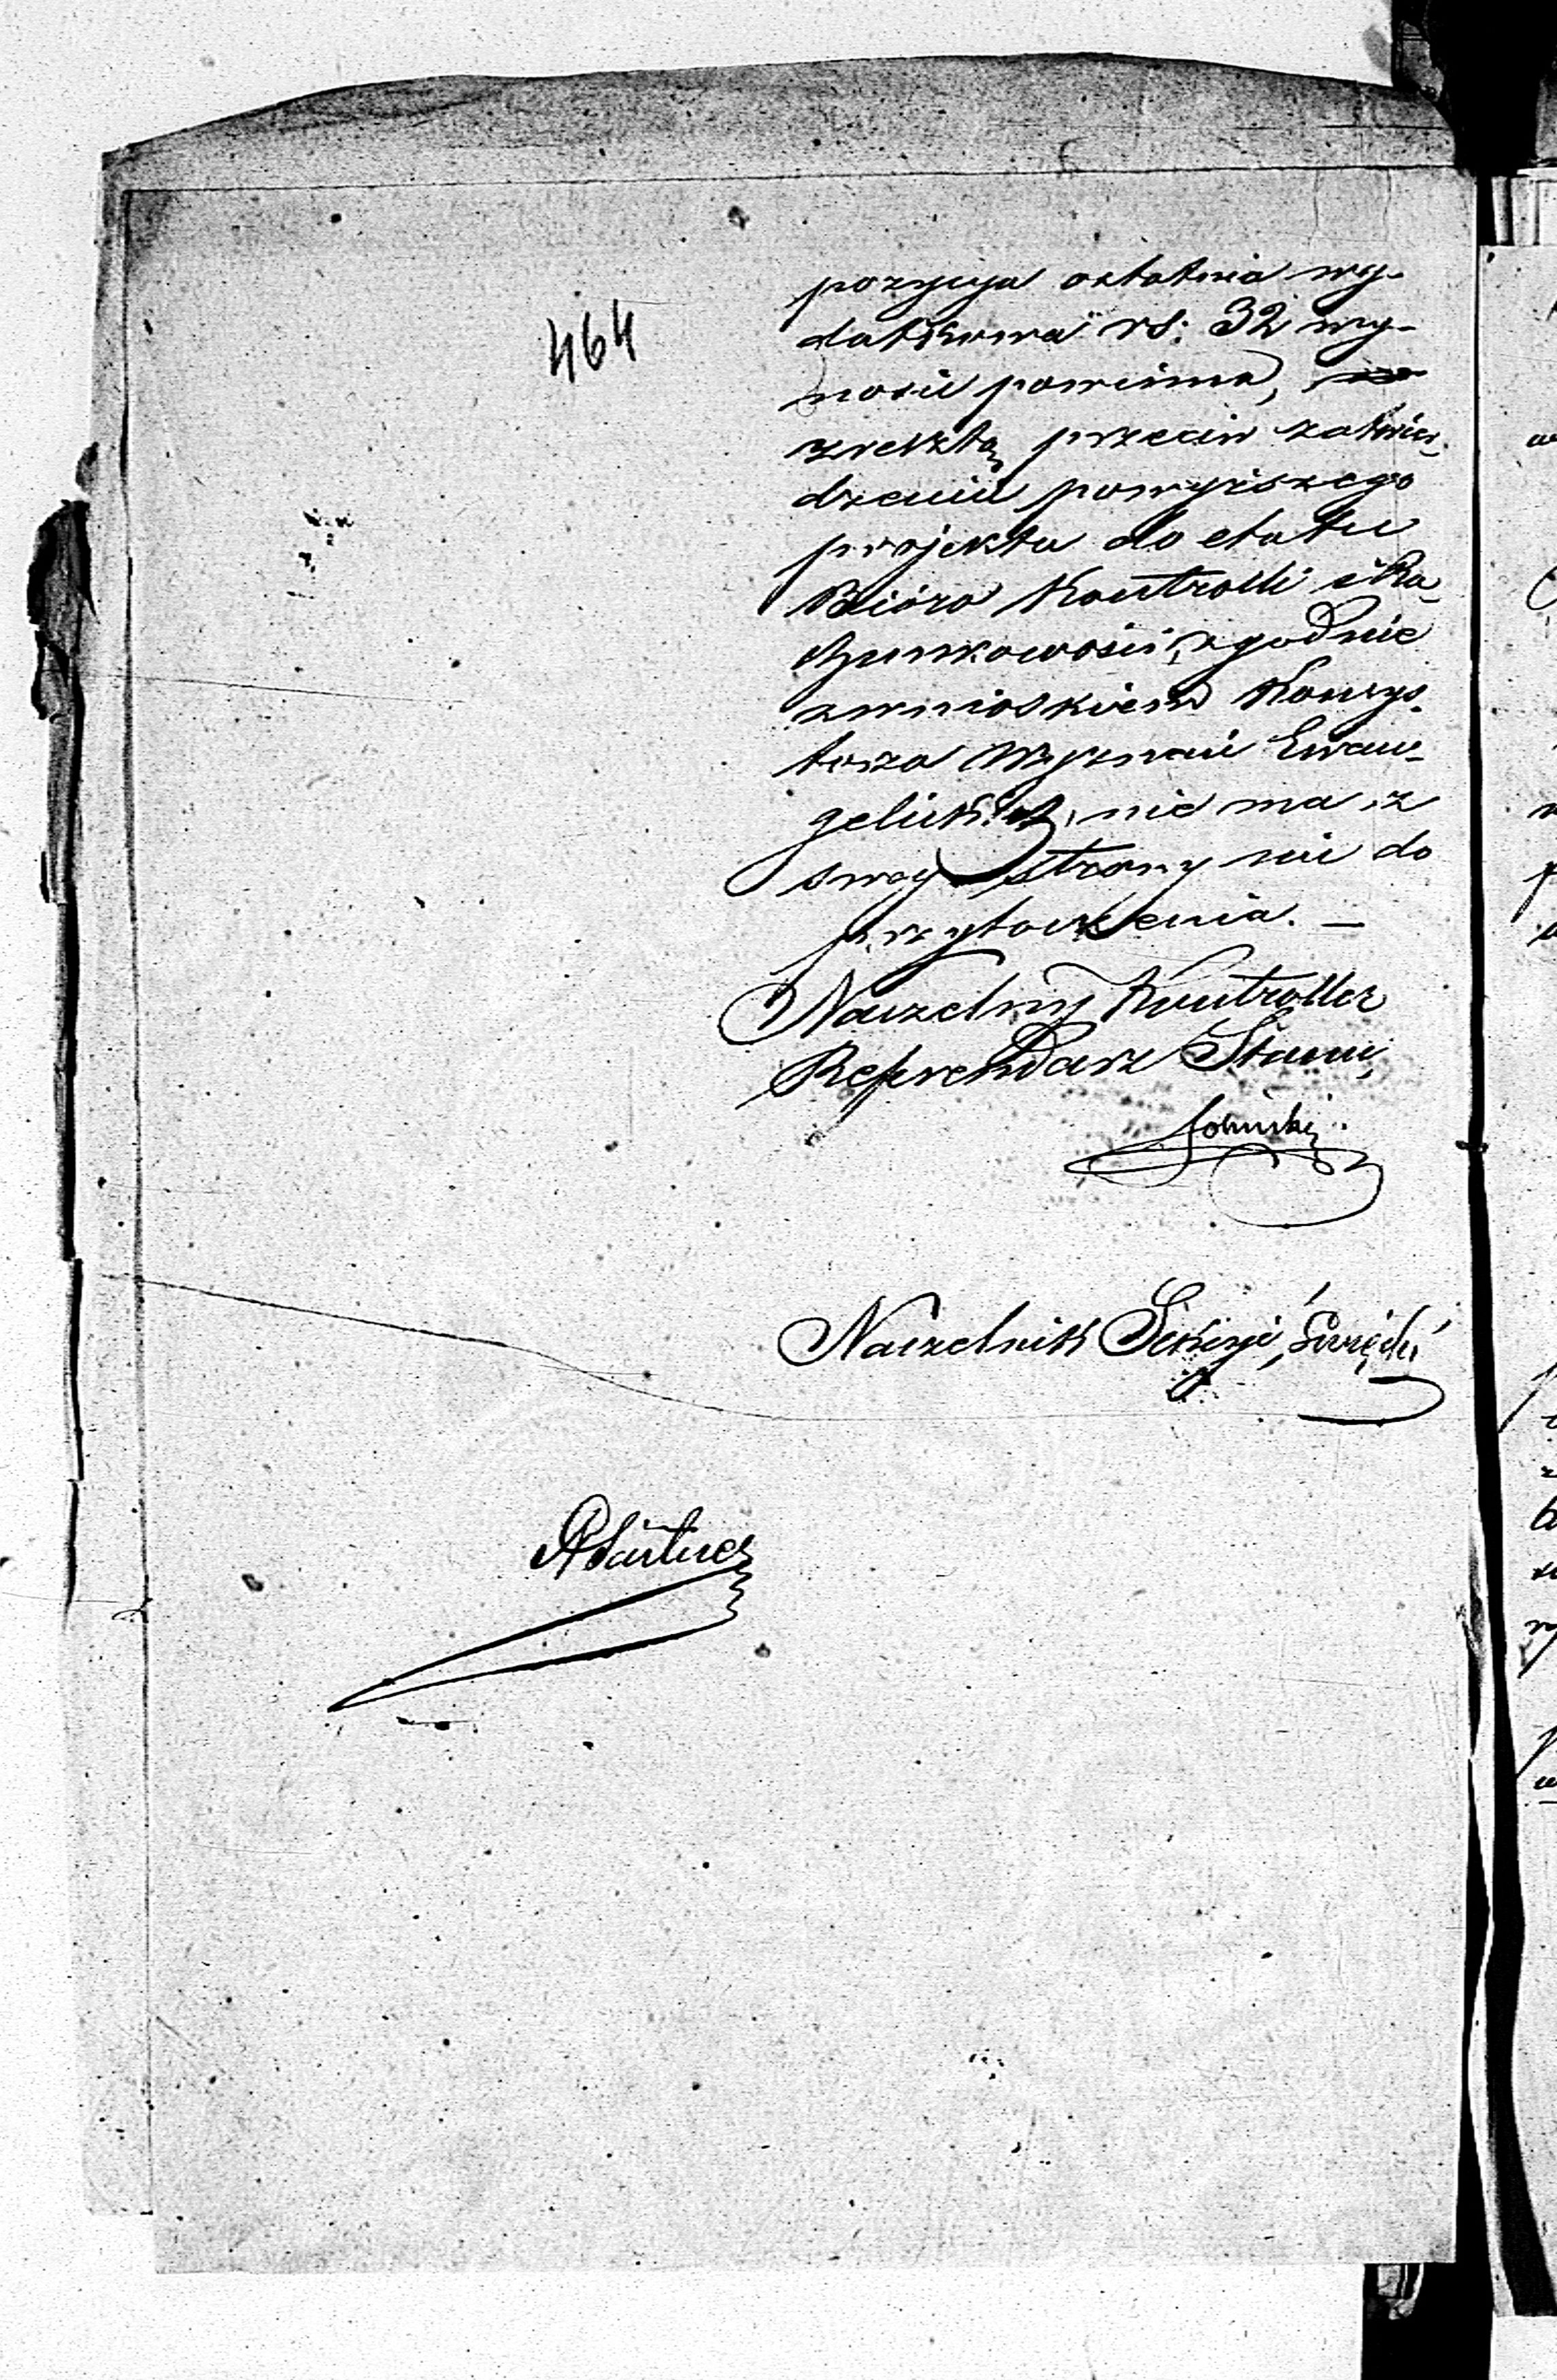 464
pozycya ostatnia wy-
datkowa rs: 32 wy-
nosić powinna,
zresztą przeciw zatwier-
dzeniu powyższego
projektu do etatu
Bióro Kontrolli i Ra-
chunkowości, zgodnie
z wnioskiem Konsys-
torza Wyznań Ewan-
gelickich, nie ma z
swey strony nic do
przytoczenia. —
Naczelny Kontroller
Referendarz Stanu,
Naczelnik Sekcyi,